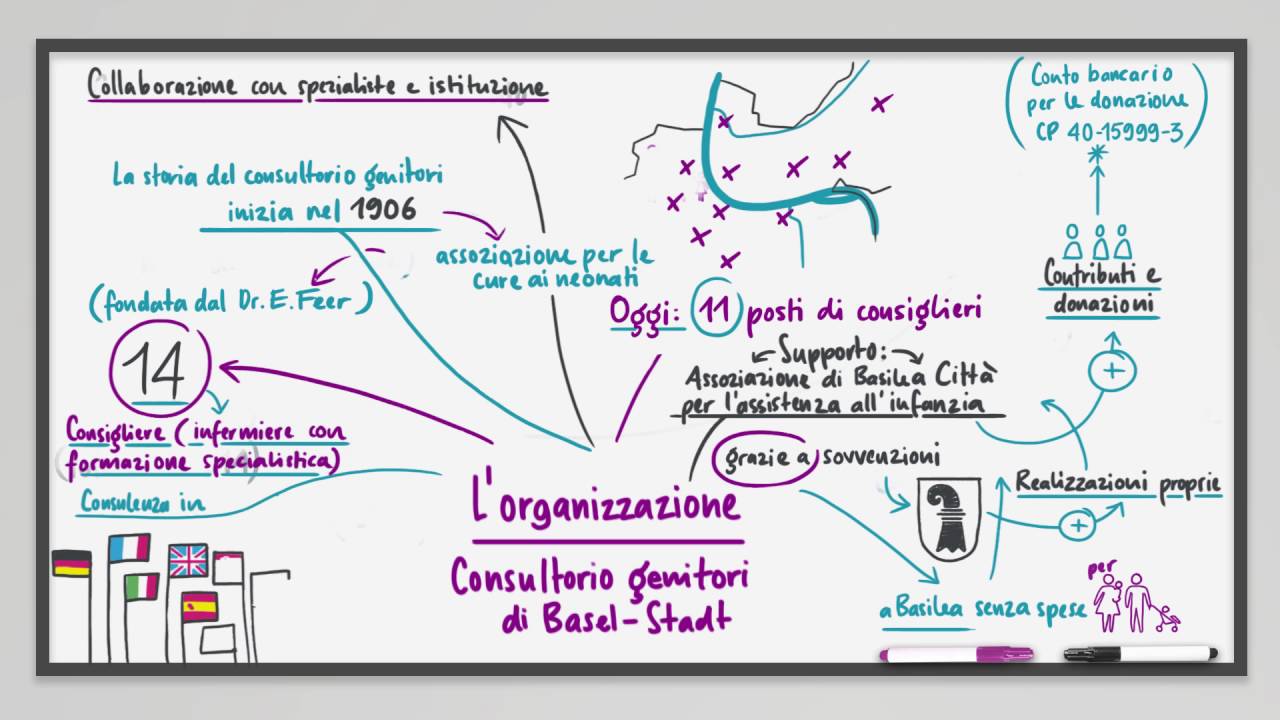 Collaborazione con spezialiste e istituzione
La storia del consultorio genitori
inizia nel 1906
assoziazione per le
cure ai neonati
(fondata dal Dr. E. Feer)
14
Consigliere (infermiere con
formazione specialistica)
Consulenza in
L'organizzazione
Consultorio genitori
di Basel-Stadt
Oggi: 11 posti di consiglieri
Supporto:
Assoziazione di Basilea Città
per l'assistenza all'infanzia
grazie a sovvenzioni
a Basilea senza spese
per
Realizzazioni proprie
+
+
Contributi e
donazioni
(Conto bancario
per le donazione
CP 40-15999-3)